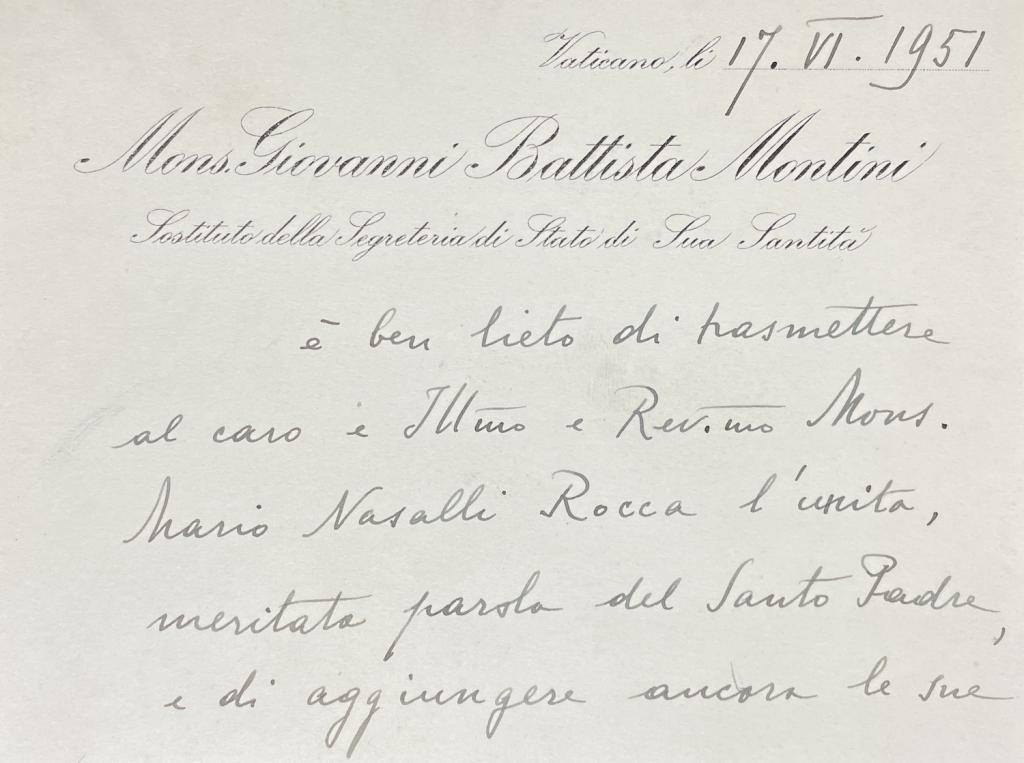 Vaticano, li 17. VI. 1951
Mons. Giovanni Battista Montini
Sostituto della Segreteria di Stato di Sua Santità
è ben lieto di trasmettere
al caro e Ill̅m̅o e Rev.m̅o Mons.
Mario Nasalli Rocca l'unita,
meritata parola del Santo Padre,
e di aggiungere ancora le sue